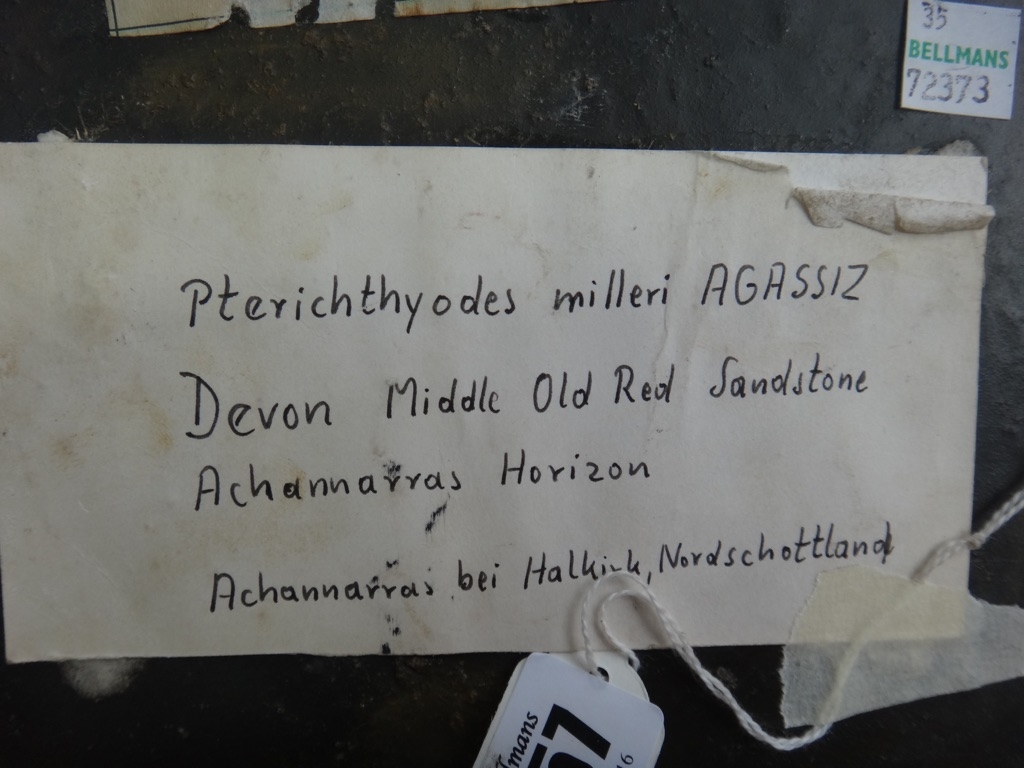 35
BELLMANS
72373
Pterichthyodes milleri AGASSIZ
Devon Middle Old Red Sandstone
Achannarras Horizon
Achannarras bei Halkirk, Nordschottland
57